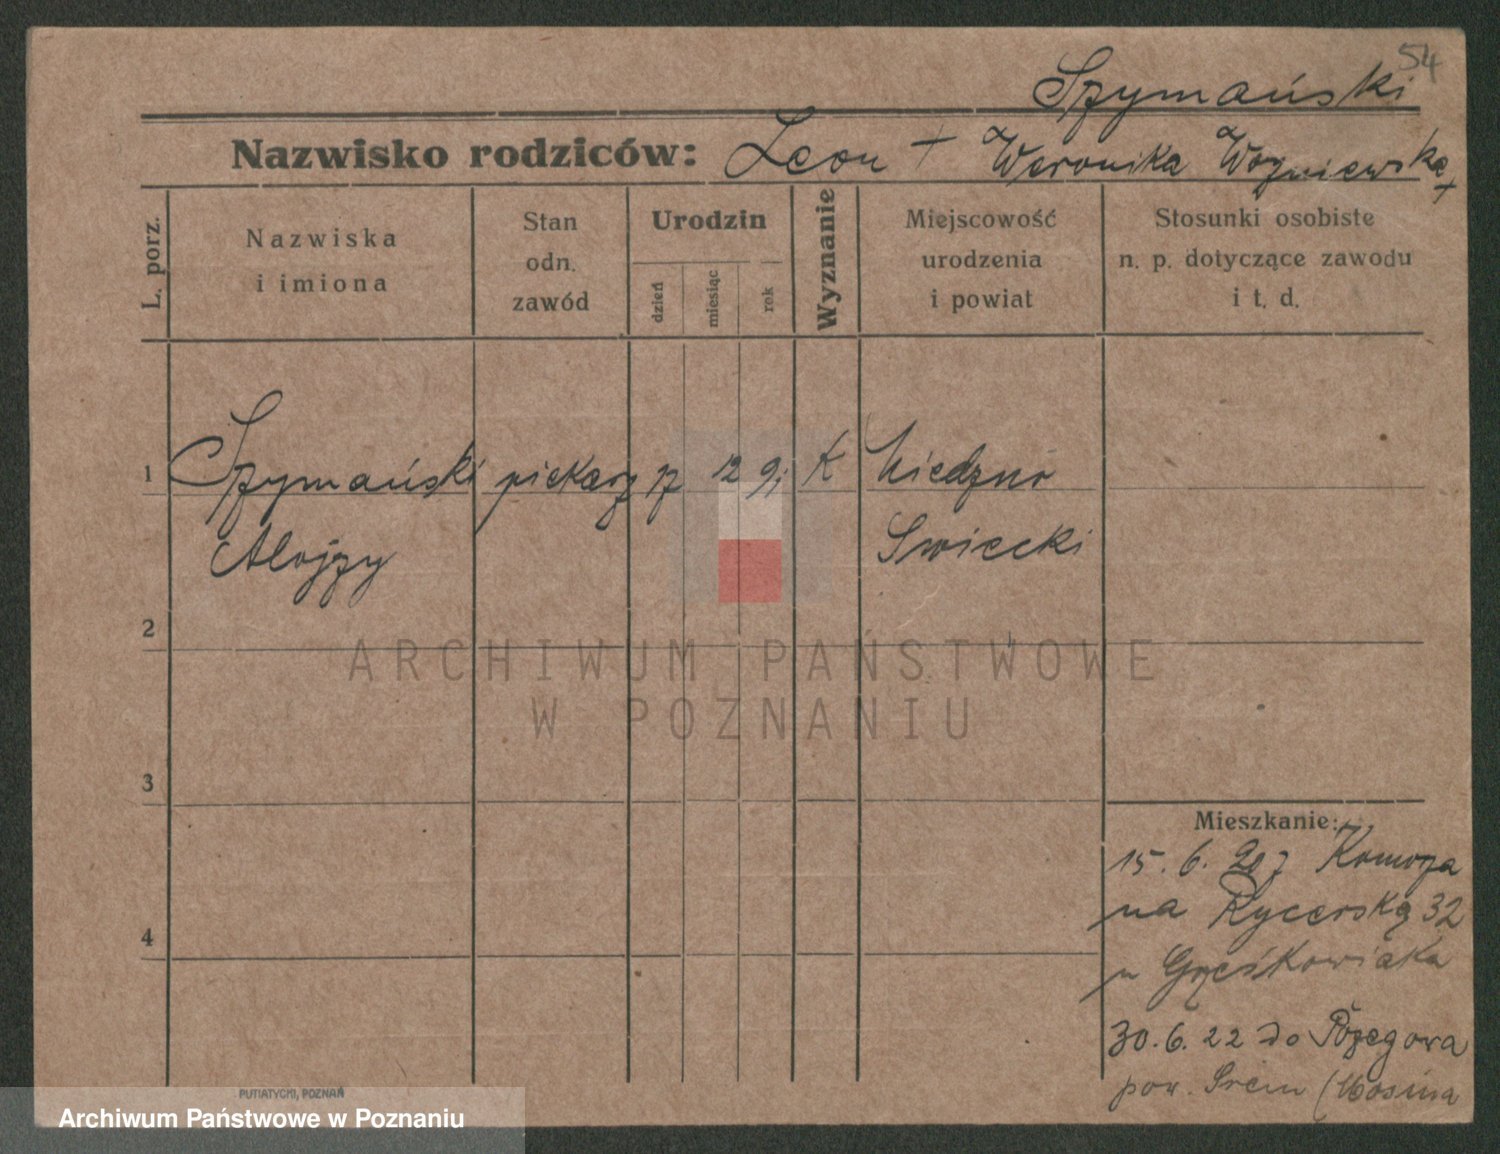 54
Szymański
Nazwisko rodziców: Leon + Weronika Wozniewska +
L. porz.
Nazwiska
i imiona
Stan
odn.
zawód
Urodzin
dzień
miesiąc
rok
Wyznanie
Miejscowość
urodzenia
i powiat
Stosunki osobiste
n. p. dotyczące zawodu
i t. d.
1
Szymański piekarz 17 12 91 K
Alojzy
Swiecki
2
ARCHIWUM PAŃSTWOWE
W POZNANIU
3
Mieszkanie:
15. 6. 20 z
na Rycerską 32
u Grześkowiaka
4
30. 6. 22 do Pożegowa
pow. Śrem (Mosina
PUTIATYCKI, POZNAŃ
Archiwum Państwowe w Poznaniu